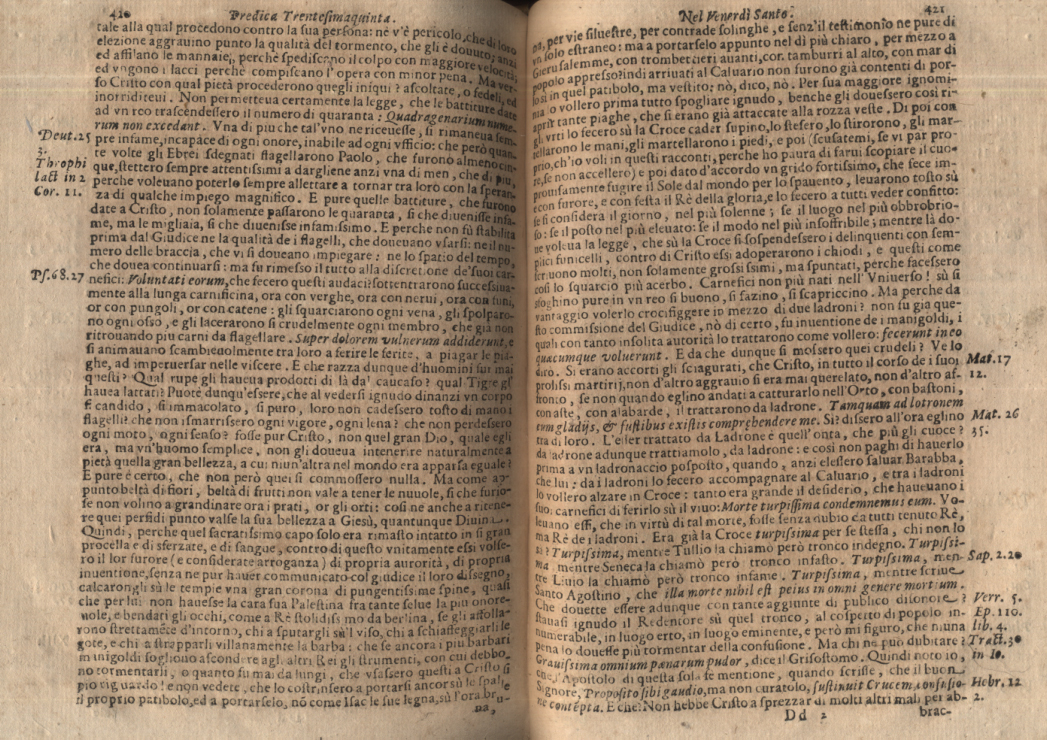 420 Predica Trentesimaquinta.
tale alla qual procedono contro la sua persona: nè v'è pericolo, che di loro
elezione aggrauino punto la qualità del tormento, che gli è douuto; anzi
ed affilano le mannaie, perche spediscano il colpo con maggiore velocità;
ed vngono i lacci perche compiscano l'opera con minor pena. Ma ver-
so Cristo con qual pietà procederono quegli iniqui? ascoltate, o fedeli, ed
inorriditeui. Non permetteua certamente la legge, che le battiture date
ad vn reo trascendessero il numero di quaranta: Quadragenarium nume-
rum non excedant. Vna di piu che tal'vno ne riceuesse, si rimaneua sem-
pre infame, incapace di ogni onore, inabile ad ogni vfficio: che però quan-
te volte gli Ebrei sdegnati flagellarono Paolo, che furono almeno cin-
que, stettero sempre attentissimi a dargliene anzi vna di men, che di piu,
perche voleuano poterlo sempre allettare a tornar tra loro con la speran-
za di qualche impiego magnifico. E pure quelle battiture, che furono
date a Cristo, non solamente passarono le quaranta, si che diuenisse infa-
me, ma le migliaia, si che diuenisse infamissimo. E perche non fù stabilita
prima dal Giudice ne la qualità de i flagelli, che doueuano vsarsi: ne il nu-
mero delle braccia, che vi si doueano impiegare: ne lo spatio del tempo,
che douea continuarsi: ma fu rimesso il tutto alla discretione de' suoi car-
nefici: Voluntati eorum, che fecero questi audaci? sottentrarono successiua-
mente alla lunga carnificina, ora con verghe, ora con nerui, ora con funi,
or con pungoli, or con catene: gli squarciarono ogni vena, gli spolparo-
no ogni osso, e gli lacerarono si crudelmente ogni membro, che già non
ritrouando piu carni da flagellare. Super dolorem vulnerum addiderunt, e
si animauano scambieuolmente tra loro a ferire le ferite, a piagar le pia-
ghe, ad imperuersar nelle viscere. E che razza dunque d'huomini fur mai
questi? Qual rupe gli haueua prodotti di là da'l caucaso? qual Tigre gl'
hauea lattati? Puote dunqu'essere, che al vedersi ignudo dinanzi vn corpo
sì candido, sì immacolato, sì puro, loro non cadessero tosto di mano i
flagelli? che non ismarrissero ogni vigore, ogni lena? che non perdessero
ogni moto, ogni senso? fosse pur Cristo, non quel gran Dio, quale egli
era, ma vn'huomo semplice, non gli doueua intenerire naturalmente a
pietà quella gran bellezza, a cui niun'altra nel mondo era apparsa eguale?
E pure è certo, che non però quei si commossero nulla. Ma come ap-
punto beltà di fiori, beltà di frutti non vale a tener le nuuole, sì che furio-
se non volino a grandinare ora i prati, or gli orti: così ne anche a ritene-
re quei perfidi punto valse la sua bellezza a Giesù, quantunque Diuina.
Quindi, perche quel sacratissimo capo solo era rimasto intatto in sì gran
procella e di sferzate, e di sangue, contro di questo vnitamente essi volse-
ro il lor furore (e considerate arroganza) di propria autorità, di propria
inuentione, senza ne pur hauer communicato col giudice il loro disegno,
calcarongli sù le tempie vna gran corona di pungentissime spine, quasi
che per lui non hauesse la cara sua Palestina fra tante selue la piu onore-
uole, e bendati gli occhi, come a Rè stolidissimo da berlina, se gli affolla-
rono strettamēte d'intorno, chi a sputargli sù'l viso, chi a schiaffeggiarli le
gote, e chi a strapparli villanamente la barba: che se ancora i piu barbari
manigoldi sogliono ascondere agl'altri Rei gli strumenti, con cui debbo-
no tormentarli, o quanto fu mai da lungi, che vsassero questi a Cristo sì
pio riguardo! e non vedete, che lo costrinsero a portarsi ancor sù le spalle
il proprio patibolo, ed a portarselo, nō come Isac le sue legna, sù l'ora bru-
na,
Deut. 25
3.
Theophi
lact in 2
Cor. 11.
Ps. 68. 27
Nel Venerdì Santo. 421
na, per vie siluestre, per contrade solinghe, e senz'il testimonio ne pure di
vn solo estraneo: ma a portarselo appunto nel dì più chiaro, per mezzo a
Gierusalemme, con trombettieri auanti, con tamburri al alto, con mar di
popolo appresso? indi arriuati al Caluario non furono già contenti di por-
losi in quel patibolo, ma vestito; nò, dico, nò. Per sua maggiore ignomi-
nia lo vollero prima tutto spogliare ignudo, benche gli douessero così ri-
aprir tante piaghe, che si erano già attaccate alla rozza veste. Di poi con
gli vrti lo fecero sù la Croce cader supino, lo stesero, lo stirorono, gli mar-
tellarono le mani, gli martellarono i piedi, e poi (scusatemi, se vi par pro-
prio, ch'io voli in questi racconti, perche ho paura di farui scopiare il cuo-
re, se non accellero) e poi dato d'accordo vn grido fortissimo, che fece im-
prouisamente fugire il Sole dal mondo per lo spauento, leuarono tosto sù
con furore, e con festa il Rè della gloria, e lo fecero a tutti veder confitto:
se si considera il giorno, nel più solenne; se il luogo nel più obbrobrio-
so: se il posto nel più eleuato: se il modo nel più insoffribile; mentre là do-
ue voleua la legge, che sù la Croce si sospendessero i delinquenti con sem-
plici funicelli, contro di Cristo essi adoperarono i chiodi, e questi come
scriuono molti, non solamente grossissimi, ma spuntati, perche facessero
così lo squarcio più acerbo. Carnefici non più nati nell'Vniuerso! sù si
sfoghino pure in vn reo si buono, si fazino, si scapriccino. Ma perche da
vantaggio volerlo crocifiggere in mezzo di due ladroni? non fu gia que-
sto commissione del Giudice, nò di certo, fu inuentione de i manigoldi, i
quali con tanto insolita autorità lo trattarono come vollero: fecerunt in eo
quæcumque voluerunt. E da che dunque si mossero quei crudeli? Ve lo
diro. Si erano accorti gli sciagurati, che Cristo, in tutto il corso de i suoi
prolissi martirij, non d'altro aggrauio si era mai querelato, non d'altro af-
fronto, se non quando eglino andati a catturarlo nell'Orto, con bastoni,
con aste, con alabarde, il trattarono da ladrone. Tamquam ad latronem
cum gladijs, & fustibus existis comprehendere me. Sì? dissero all'ora eglino
tra di loro. L'esser trattato da Ladrone è quell'onta, che più gli cuoce?
da ladrone adunque trattiamolo, da ladrone: e così non paghi di hauerlo
prima a vn ladronaccio posposto, quando, anzi elessero saluar Barabba,
che lui: da i ladroni lo fecero accompagnare al Caluario, e tra i ladroni
lo vollero alzare in Croce: tanto era grande il desiderio, che haueuano i
suoi carnefici di ferirlo sù il viuo: Morte turpissima condemnemus eum. Vo-
leuano essi, che in virtù di tal morte, fosse senza dubio da tutti tenuto Rè,
ma Rè de i ladroni. Era già la Croce turpissima per se stessa, chi non lo
sà? Turpissima, mentre Tullio la chiamò però tronco indegno. Turpissi-
ma mentre Seneca la chiamò però tronco infasto. Turpissima, men-
tre Liuio la chiamò però tronco infame. Turpissima, mentre scriue
Santo Agostino, che illa morte nihil est peius in omni genere mortium.
Che douette essere adunque con tante aggiunte di publico disonore?
stauasi ignudo il Redentore sù quel tronco, al cospetto di popolo in-
numerabile, in luogo erto, in luogo eminente, e però mi figuro, che niuna
pena lo douesse più tormentar della confusione. Ma chi ne può dubitare?
Grauissima omnium pænarum pudor, dice il Grisostomo. Quindi noto io,
che l'Apostolo di questa sola fe mentione, quando scrisse, che il buen
Signore, Proposito sibi gaudio, ma non curatolo, sustinuit Crucem confusio-
ne contēpta. E che? Non hebbe Cristo a sprezzar di molti altri mali per ab-
Dd 2 brac-
Mat. 17
12.
Mat. 26
35.
Sap. 2. 20
Verr. 5.
Ep. 110.
lib. 4.
Tract. 36
in Io.
Hebr. 12
2.